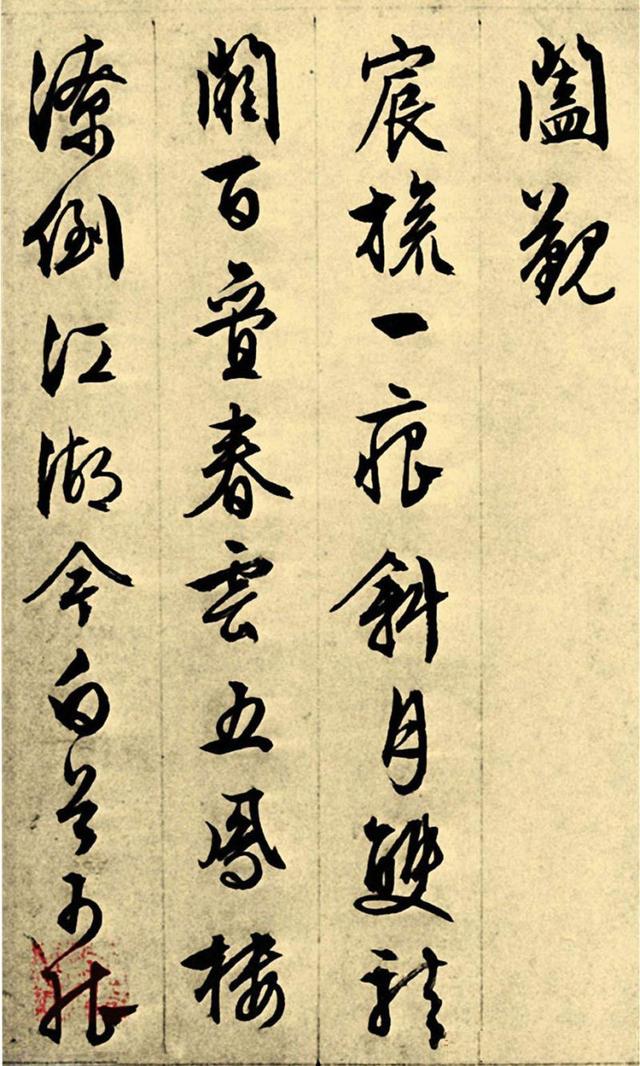 闔覲
宸旒一痕斜月雙龍
闕百疊春雲五鳳樓
潦倒江湖今白首可能